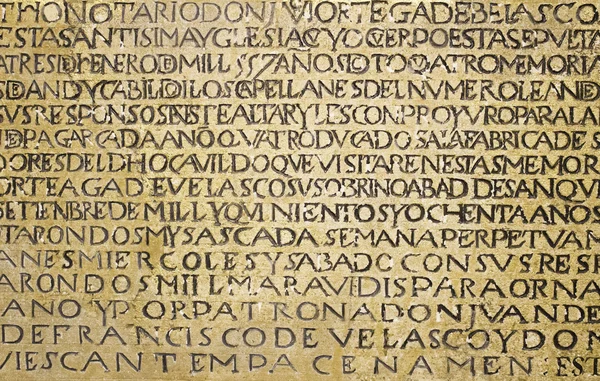 THONOTARIO DON IV ORTEGA DE BELASCO
ESTA SANTISIMA YGLESIA CVYO CVERPO ESTA SEPVLTA
A TRES DE HENERO DE MILL 557 ANOS DOTO QVATRO MEMORIA
DEAN D Y CABILDO I LOS CAPELLANES DEL NVMERO LE AN DE
SVS RESPONSOS ANSTE ALTAR Y LES CON PROY VRO PARA LA
DE PAGAR CADA ANO QVATRO DVCADOS A LA FABRICA DE S
DORES DEL DHO CAVILDO QVE VISITAREN ESTAS MEMOR
ORTEGA GA DE VELASCO SV SOBRINO ABAD DE SAN QVI
SETIENBRE DE MILL Y QVINIENTOS Y OCHENTA ANOS
OTARON DOS MYSAS CADA SEMANA PERPETVAM
ANES MIERCOLES Y SABADO CON SVS RESP
ARON DOS MILL MARAVIDIS PARA ORNA
ANO Y POR PATRONA DON JVAN DE
DE FRANCISCO DE VELASCO Y DON
VIESCANTEMPACENAMEN EST